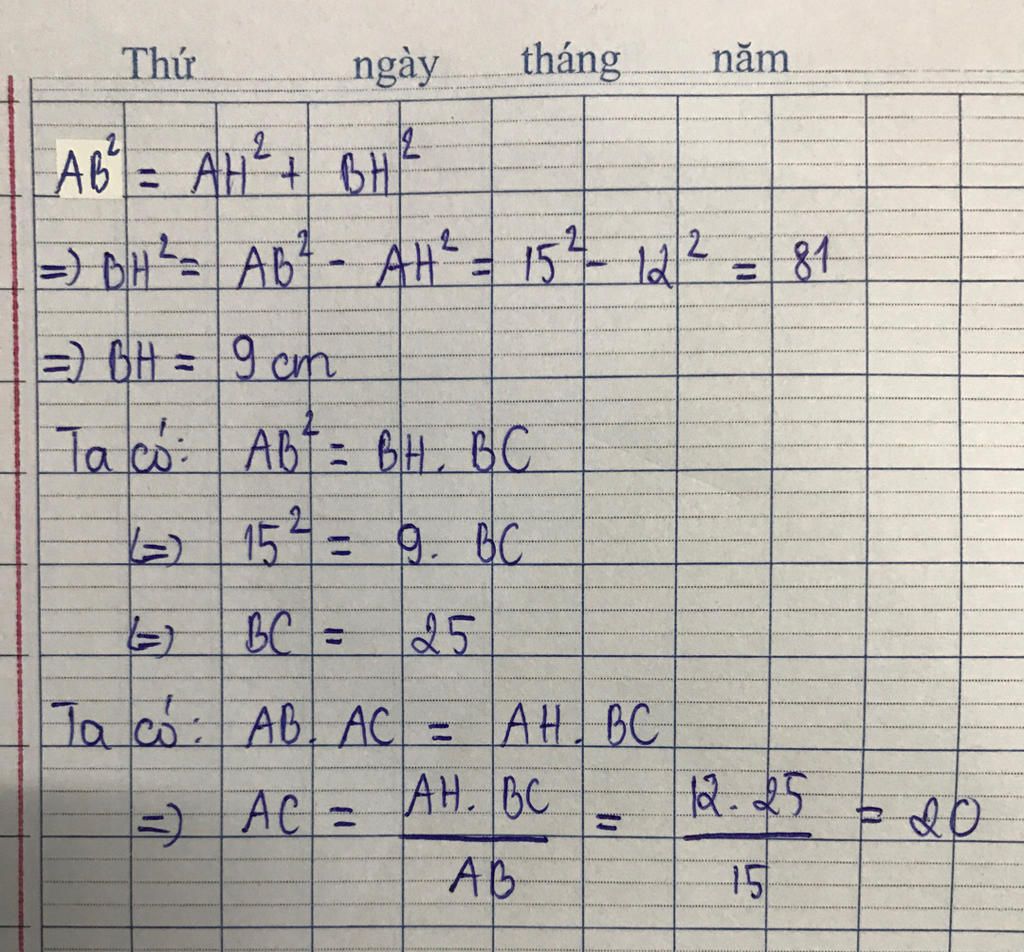 Thứ ngày tháng năm
AB² = AH² + BH²
=) BH² = AB² - AH² = 15² - 12² = 81
=) BH = 9 cm
Ta có: AB² = BH. BC
(=) 15² = 9. BC
(=) BC = 25
Ta có: AB. AC = AH. BC
=) AC = AH. BC / AB = 12. 25 / 15 = 20